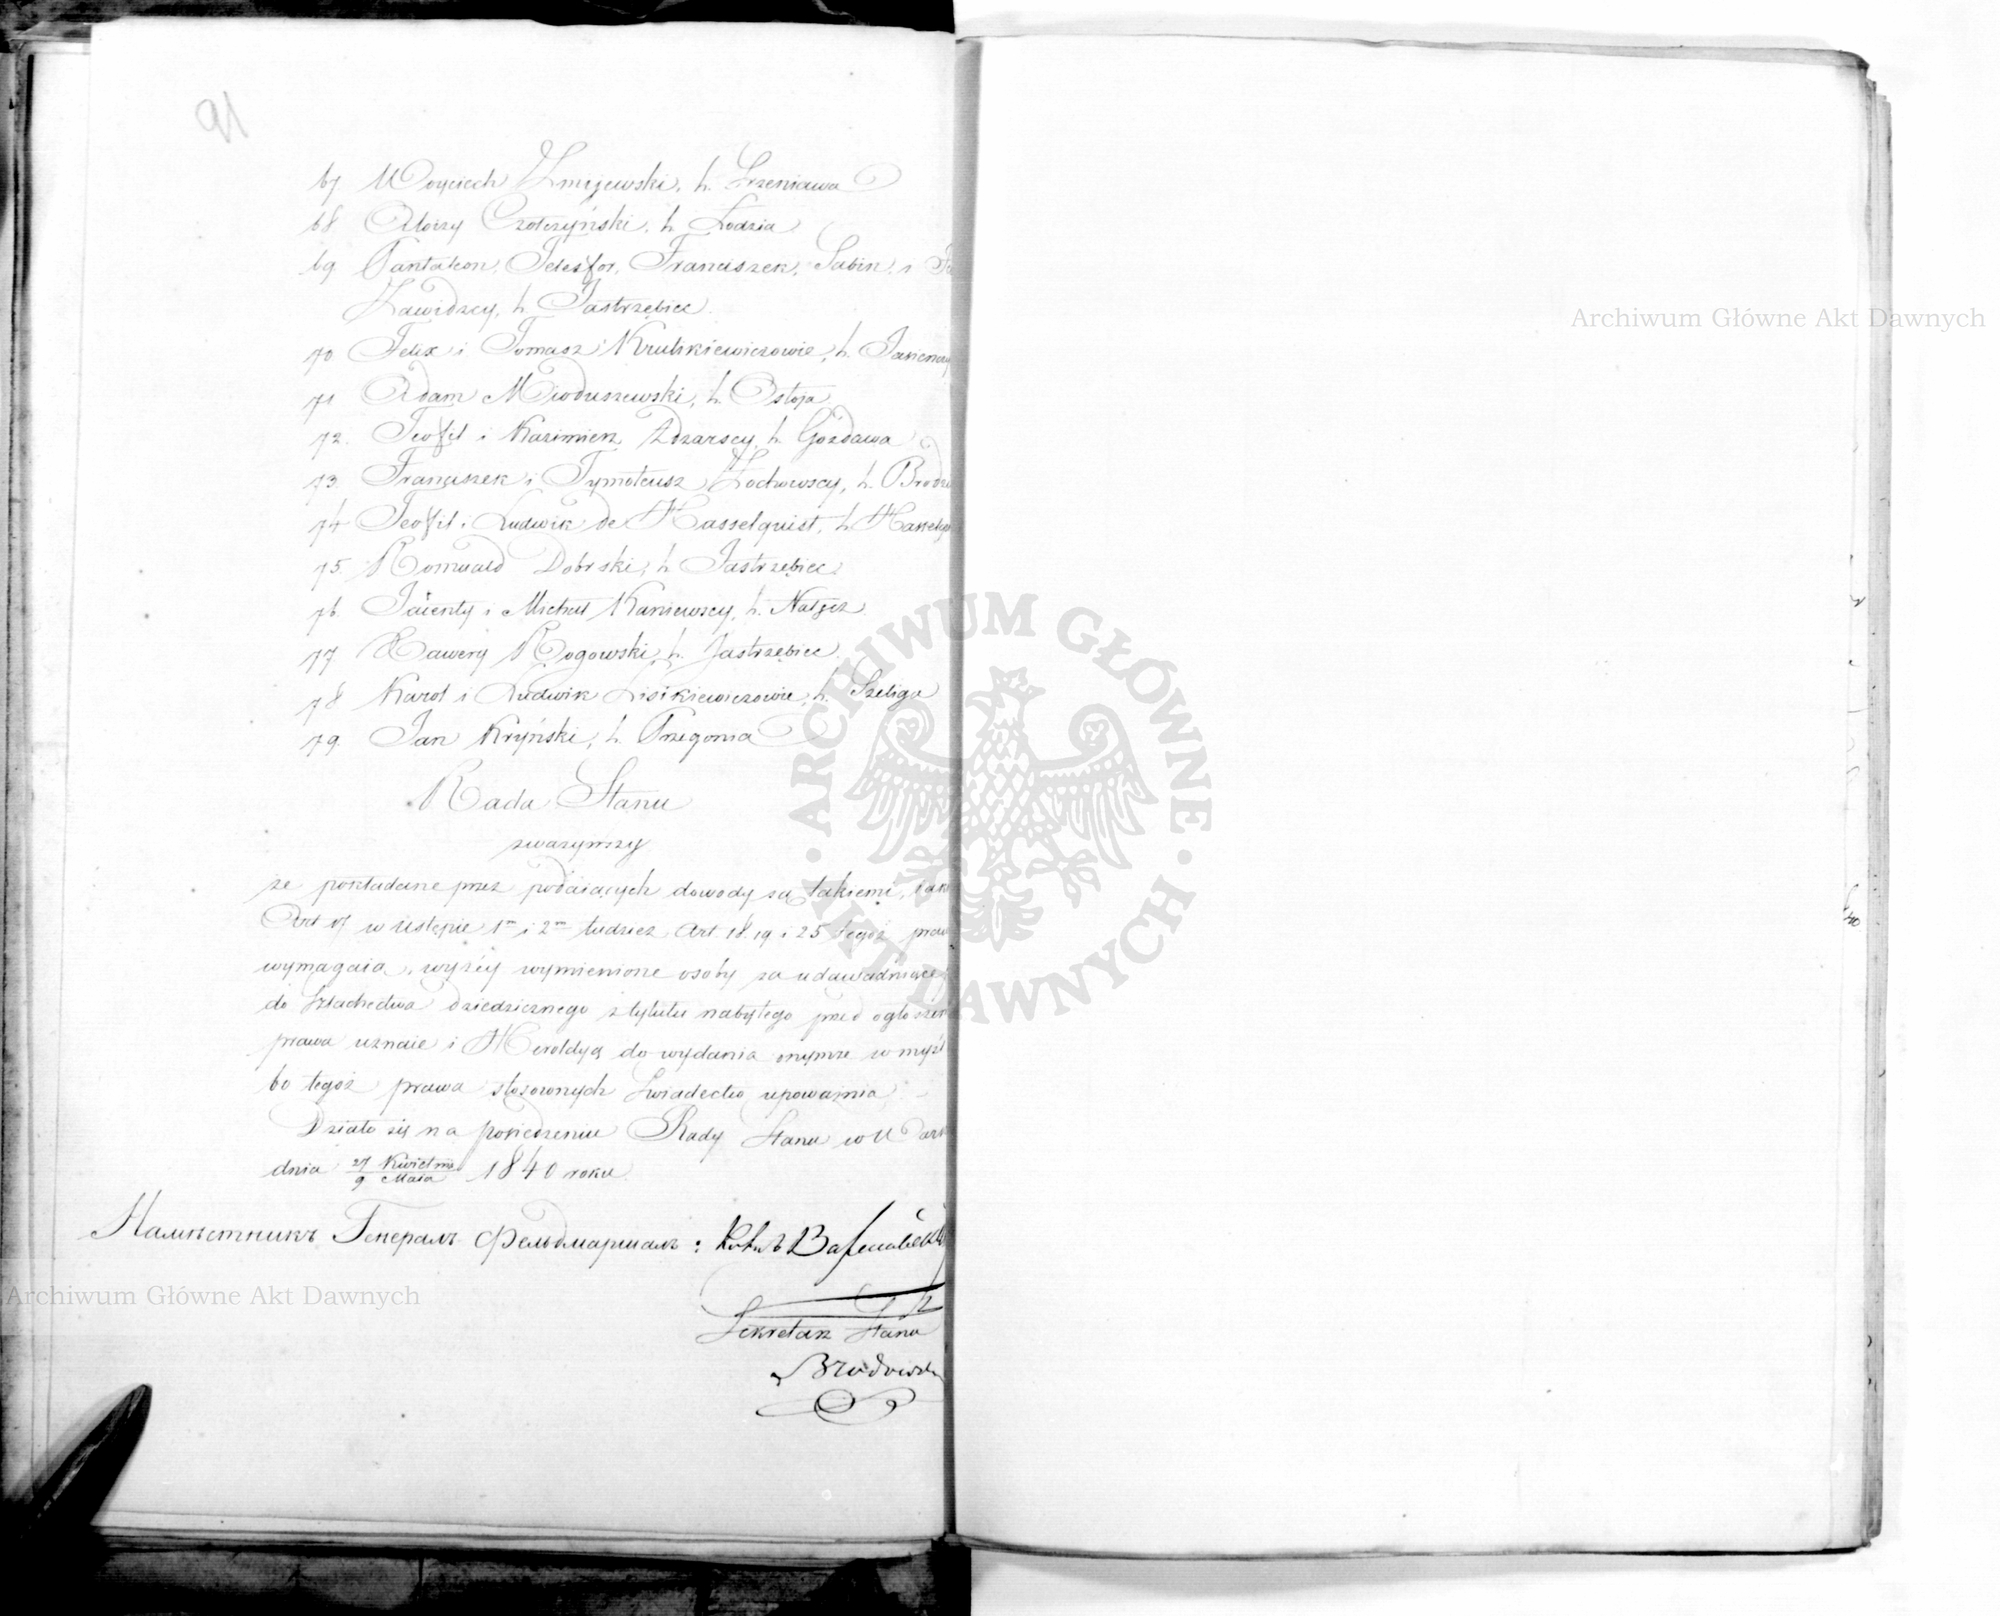 91
67 Woyciech Żmijewski, h. Srzeniawa
68 Aloizy Czołczyński, h. Łodzia
69 Pantaleon, Telesfor, Franciszek, Sabin, i
Zawidzcy, h. Jastrzębiec.
70 Felix i Tomasz Krulikiewiczowie, h.
71 Adam Mioduszewski, h. Ostoja
72. Teofil i Kazimierz Zdzarscy, h. Gozdawa
73. Franciszek i Tymoteusz Żochowscy, h.
74 Teofil i Ludwik de Hasselquist, h.
75 Romuald Dobrski, h. Jastrzębiec.
76. Jacenty i Michał Kaniewscy, h. Nałęcz.
77 Xawery Rogowski, h. Jastrzębiec.
78 Karol i Ludwik Lisikiewiczowie, h. Szeliga
79. Jan Kryński, h. Przegonia
Rada Stanu
zwazywszy
ze pokładane przez podaiących dowody są takiemi,
Art 17 w ustępie 1m i 2m tudziez Art. 18. 19 i 25 tegoż
wymagaia, wyżéy wymienione osoby za
do Szlachectwa dziedzicznego z tytułu nabytego przed
prawa uznaie i Heroldyą do wydania onymze w myśl
60 tegoż prawa stosownych Swiadectw upoważnia.
Działo się na posiedzeniu Rady Stanu w
dnia 27 Kwietnia
9 Maia 1840 roku.
Намѣстникъ Генералъ Фельдмаршалъ:
Sekretarz Stanu
Archiwum Główne Akt Dawnych
Archiwum Główne Akt Dawnych
· ARCHIWUM GŁÓWNE · AKT DAWNYCH